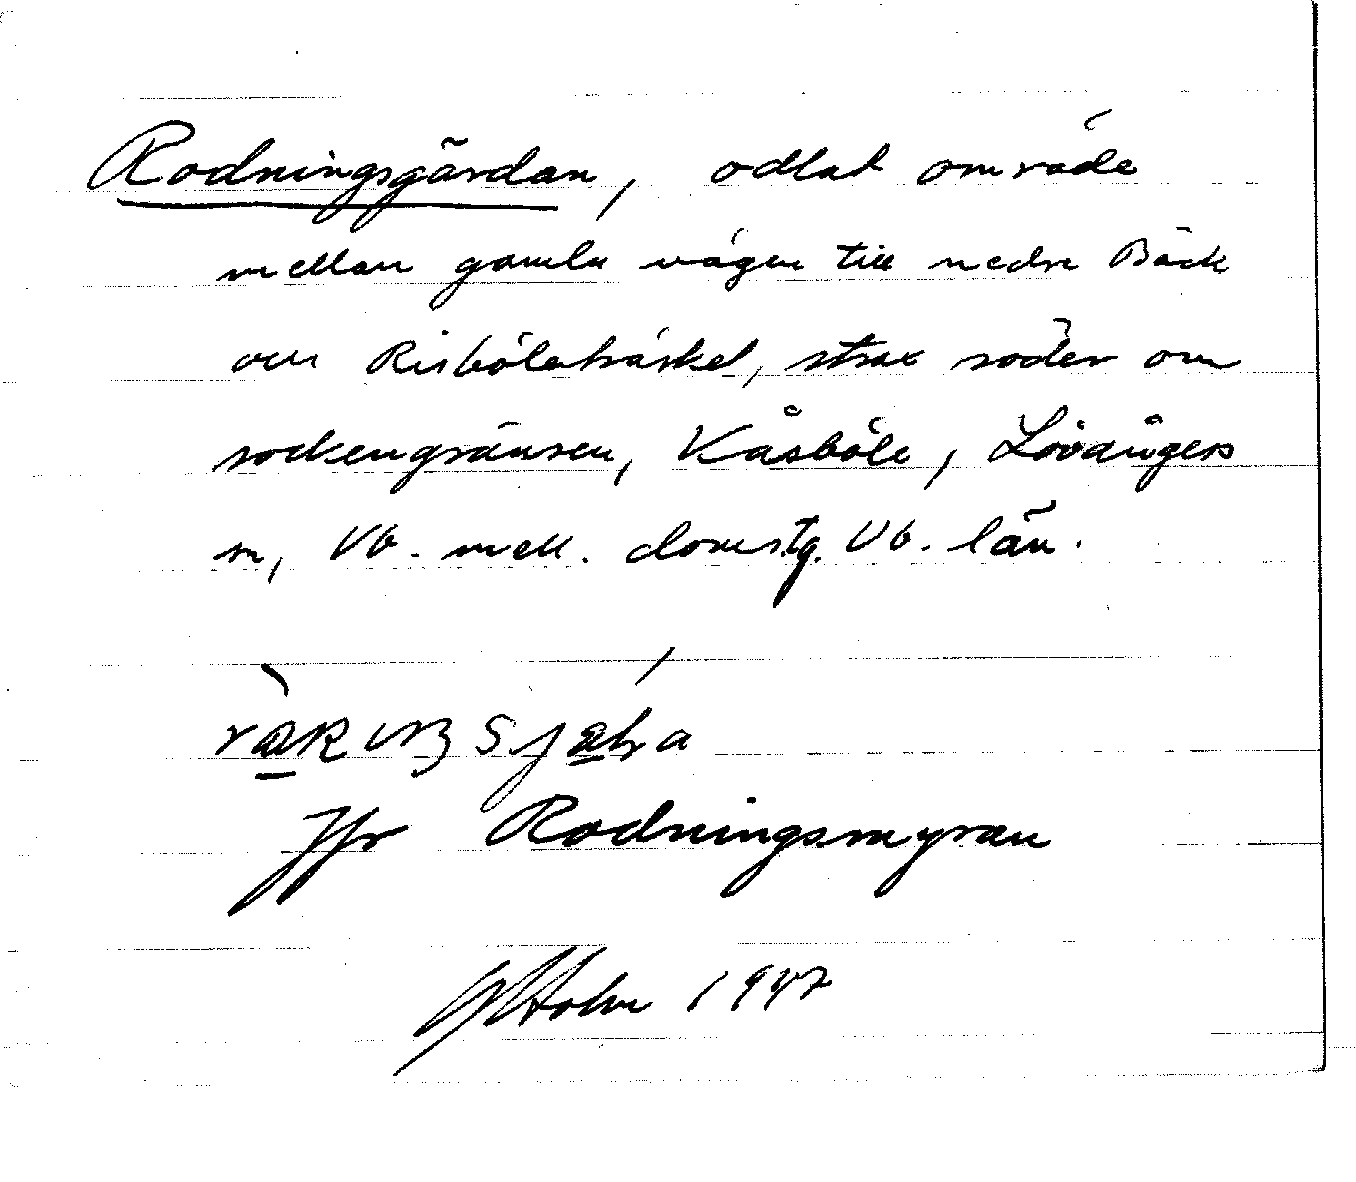 Rodningsgärdan, odlat område
mellan gamla vägen till nedre Bäck
och Risböleträsket, strax söder om
sockengränsen, Kåsböle, Lövångers
sn, Vb. mell. domstg. Vb. län.
Jfr Rodningsmyran
Holm 1947